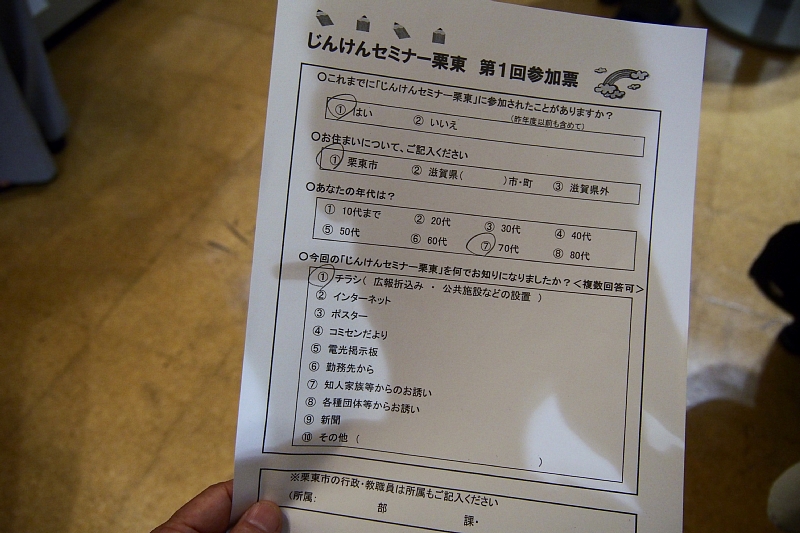 じんけんセミナー栗東 第1回参加票
○これまでに「じんけんセミナー栗東」に参加されたことがありますか?
① はい ② いいえ (昨年度以前も含めて)
○お住まいについて、ご記入ください
① 栗東市 ② 滋賀県( )市・町 ③ 滋賀県外
○あなたの年代は?
① 10代まで ② 20代 ③ 30代 ④ 40代
⑤ 50代 ⑥ 60代 ⑦ 70代 ⑧ 80代
○今回の「じんけんセミナー栗東」を何でお知りになりましたか?<複数回答可>
① チラシ( 広報折込み ・ 公共施設などの設置 )
② インターネット
③ ポスター
④ コミセンだより
⑤ 電光掲示板
⑥ 勤務先から
⑦ 知人家族等からのお誘い
⑧ 各種団体等からお誘い
⑨ 新聞
⑩ その他 ( )
※栗東市の行政・教職員は所属もご記入ください
(所属: 部 課・